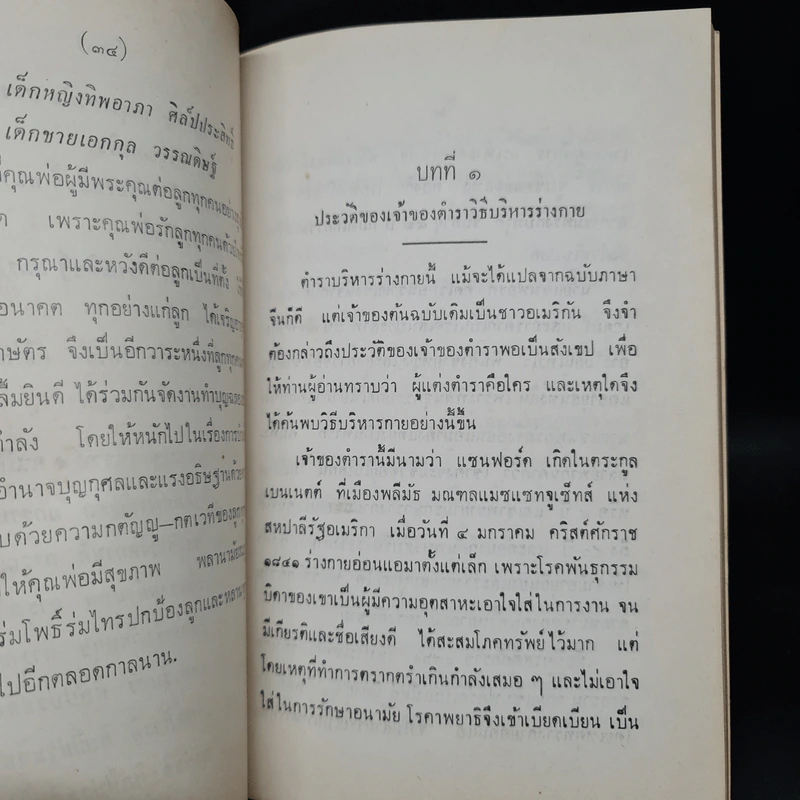 (๓๔)
เด็กหญิงทิพอาภา ศิลป์ประสิทธิ์
เด็กชายเอกกุล วรรณดิษฐ์
มีคุณพ่อผู้มีพระคุณต่อลูกทุกคนอย่าง
เพราะคุณพ่อรักลูกทุกคนด้วย
กรุณาและหวังดีต่อลูกเป็นที่ตั้ง
อนาคต ทุกอย่างแก่ลูก ได้เจริญ
จึงเป็นอีกวาระหนึ่งที่ลูกทุกคน
ได้ร่วมกันจัดงานทำบุญ
กำลัง โดยให้หนักไปในเรื่องการ
อำนาจบุญกุศลและแรงอธิษฐานด้วย
ด้วยความกตัญญู—กตเวทีของลูก
ให้คุณพ่อมีสุขภาพ พลานามัย
ร่มโพธิ์ร่มไทรปกป้องลูกและหลาน
ไปอีกตลอดกาลนาน.
บทที่ ๑
ประวัติของเจ้าของตำราวิธีบริหารร่างกาย
ตำราบริหารร่างกายนี้ แม้จะได้แปลจากฉบับภาษา
จีนก็ดี แต่เจ้าของต้นฉบับเดิมเป็นชาวอเมริกัน จึงจำ
ต้องกล่าวถึงประวัติของเจ้าของตำราพอเป็นสังเขป เพื่อ
ให้ท่านผู้อ่านทราบว่า ผู้แต่งตำราคือใคร และเหตุใดจึง
ได้ค้นพบวิธีบริหารกายอย่างนี้ขึ้น
เจ้าของตำรานี้มีนามว่า แซนฟอร์ด เกิดในตระกูล
เบนเนตต์ ที่เมืองพลีมัธ มณฑลแมซแซทจูเซ็ทส์ แห่ง
สหปาลีรัฐอเมริกา เมื่อวันที่ ๔ มกราคม คริสต์ศักราช
๑๘๔๑ ร่างกายอ่อนแอมาตั้งแต่เล็ก เพราะโรคพันธุกรรม
บิดาของเขาเป็นผู้มีความอุตสาหะเอาใจใส่ในการงาน จน
มีเกียรติและชื่อเสียงดี ได้สะสมโภคทรัพย์ไว้มาก แต่
โดยเหตุที่ทำการตรากตรำเกินกำลังเสมอ ๆ และไม่เอาใจ
ใส่ในการรักษาอนามัย โรคาพยาธิจึงเข้าเบียดเบียน เป็น